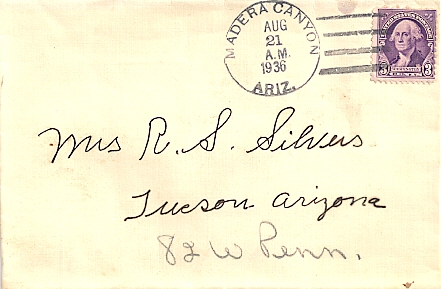 MADERA CANYON
AUG
21
A.M.
1936
ARIZ.
3 WASHINGTON 3
Mrs R. S. Silvers
Tucson Arizona
82 W Penn.